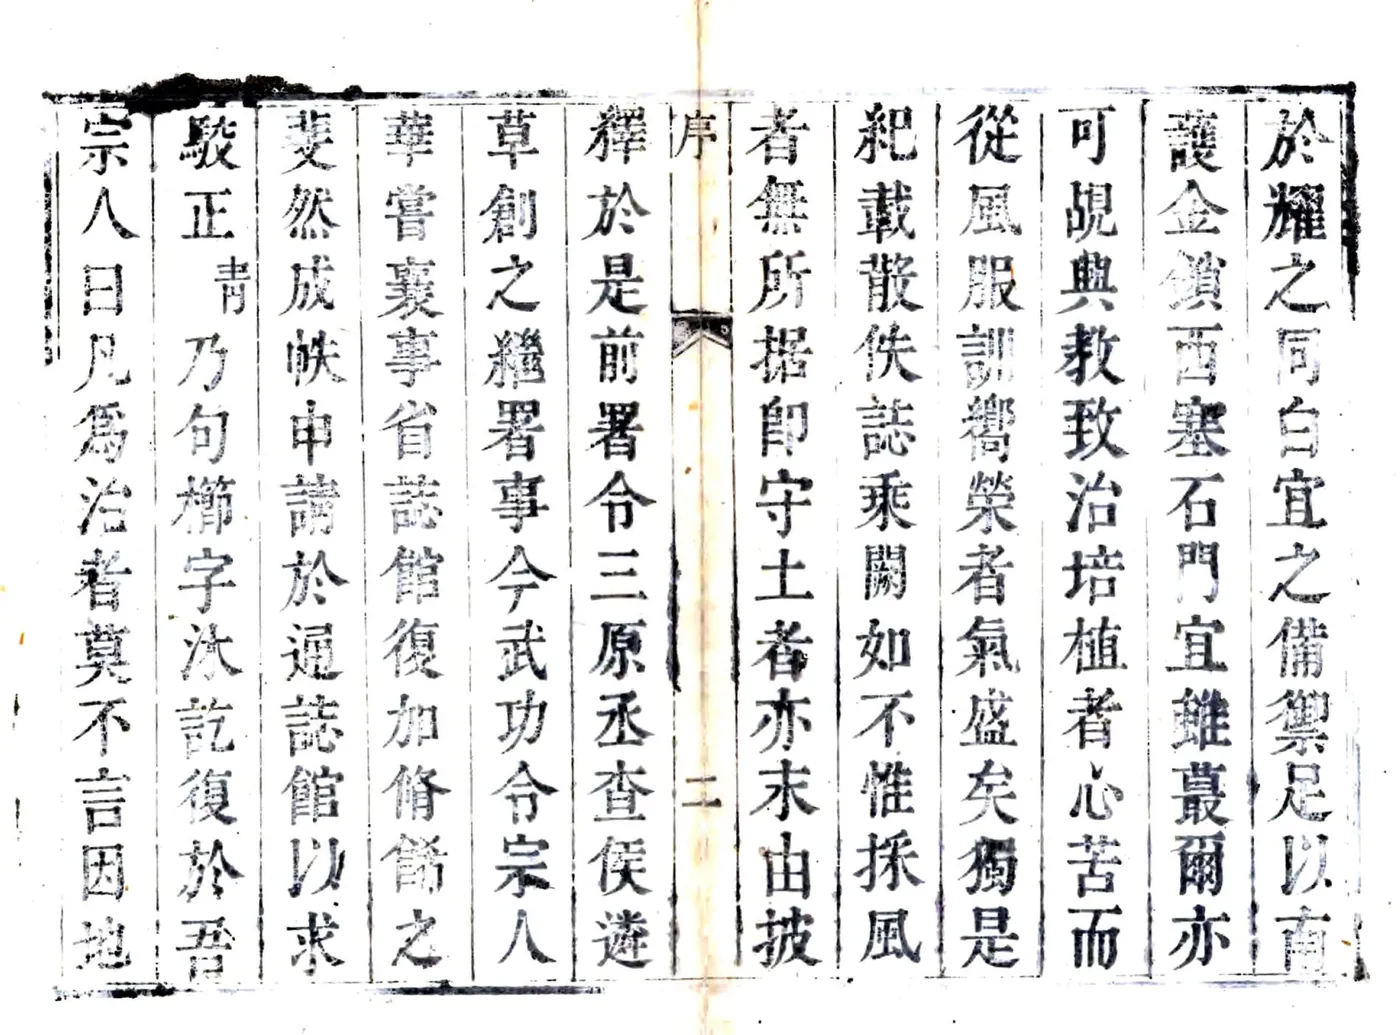 於耀之同白宜之備禦足以南
護金鎖西塞石門宜雖蕞爾亦
可覘興教致治培植者心苦而
從風服訓嚮榮者氣盛矣獨是
紀載散佚誌乘闕如不惟採風
者無所据卽守土者亦末由披
序
二
釋於是前署令三原丞查侯遴
草創之繼署事今武功令宗人
華嘗襄事省誌館復加脩餙之
斐然成帙申請於通誌館以求
駮正靑乃句櫛字沐訖復於吾
宗人曰凡爲治者莫不言因地